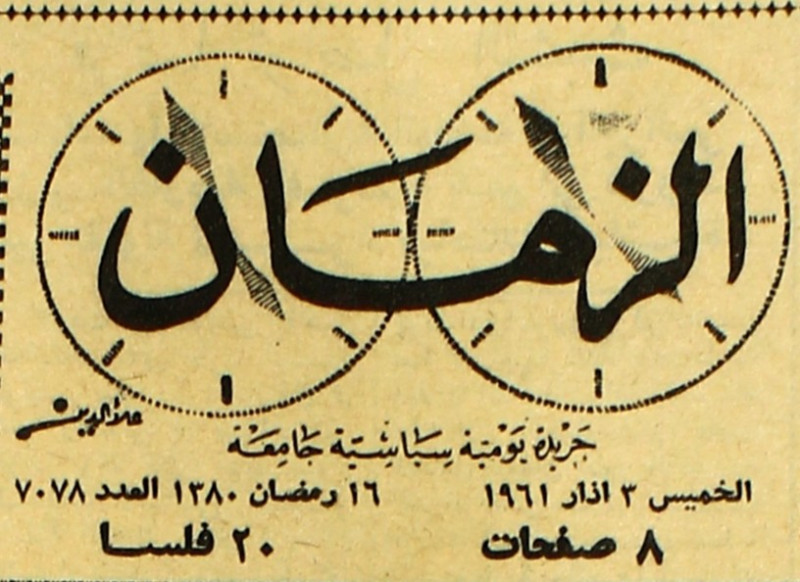 الزمان
علاء الدين
جريدة يومية سياسية جامعة
الخميس ٣ اذار ١٩٦١ ١٦ رمضان ١٣٨٠ العدد ٧٠٧٨
٨ صفحات ٢٠ فلسا